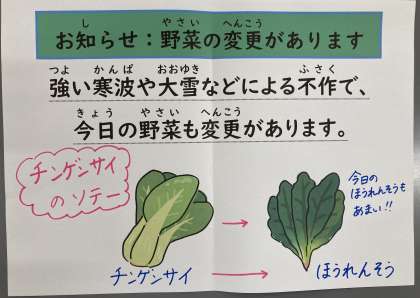 お知らせ:野菜の変更があります
し やさい へんこう
強い寒波や大雪などによる不作で、
つよ かんぱ おおゆき ふさく
今日の野菜も変更があります。
きょう やさい へんこう
チンゲンサイ
のソテー
今日の
ほうれんそうも
あまい!!
チンゲンサイ
ほうれんそう